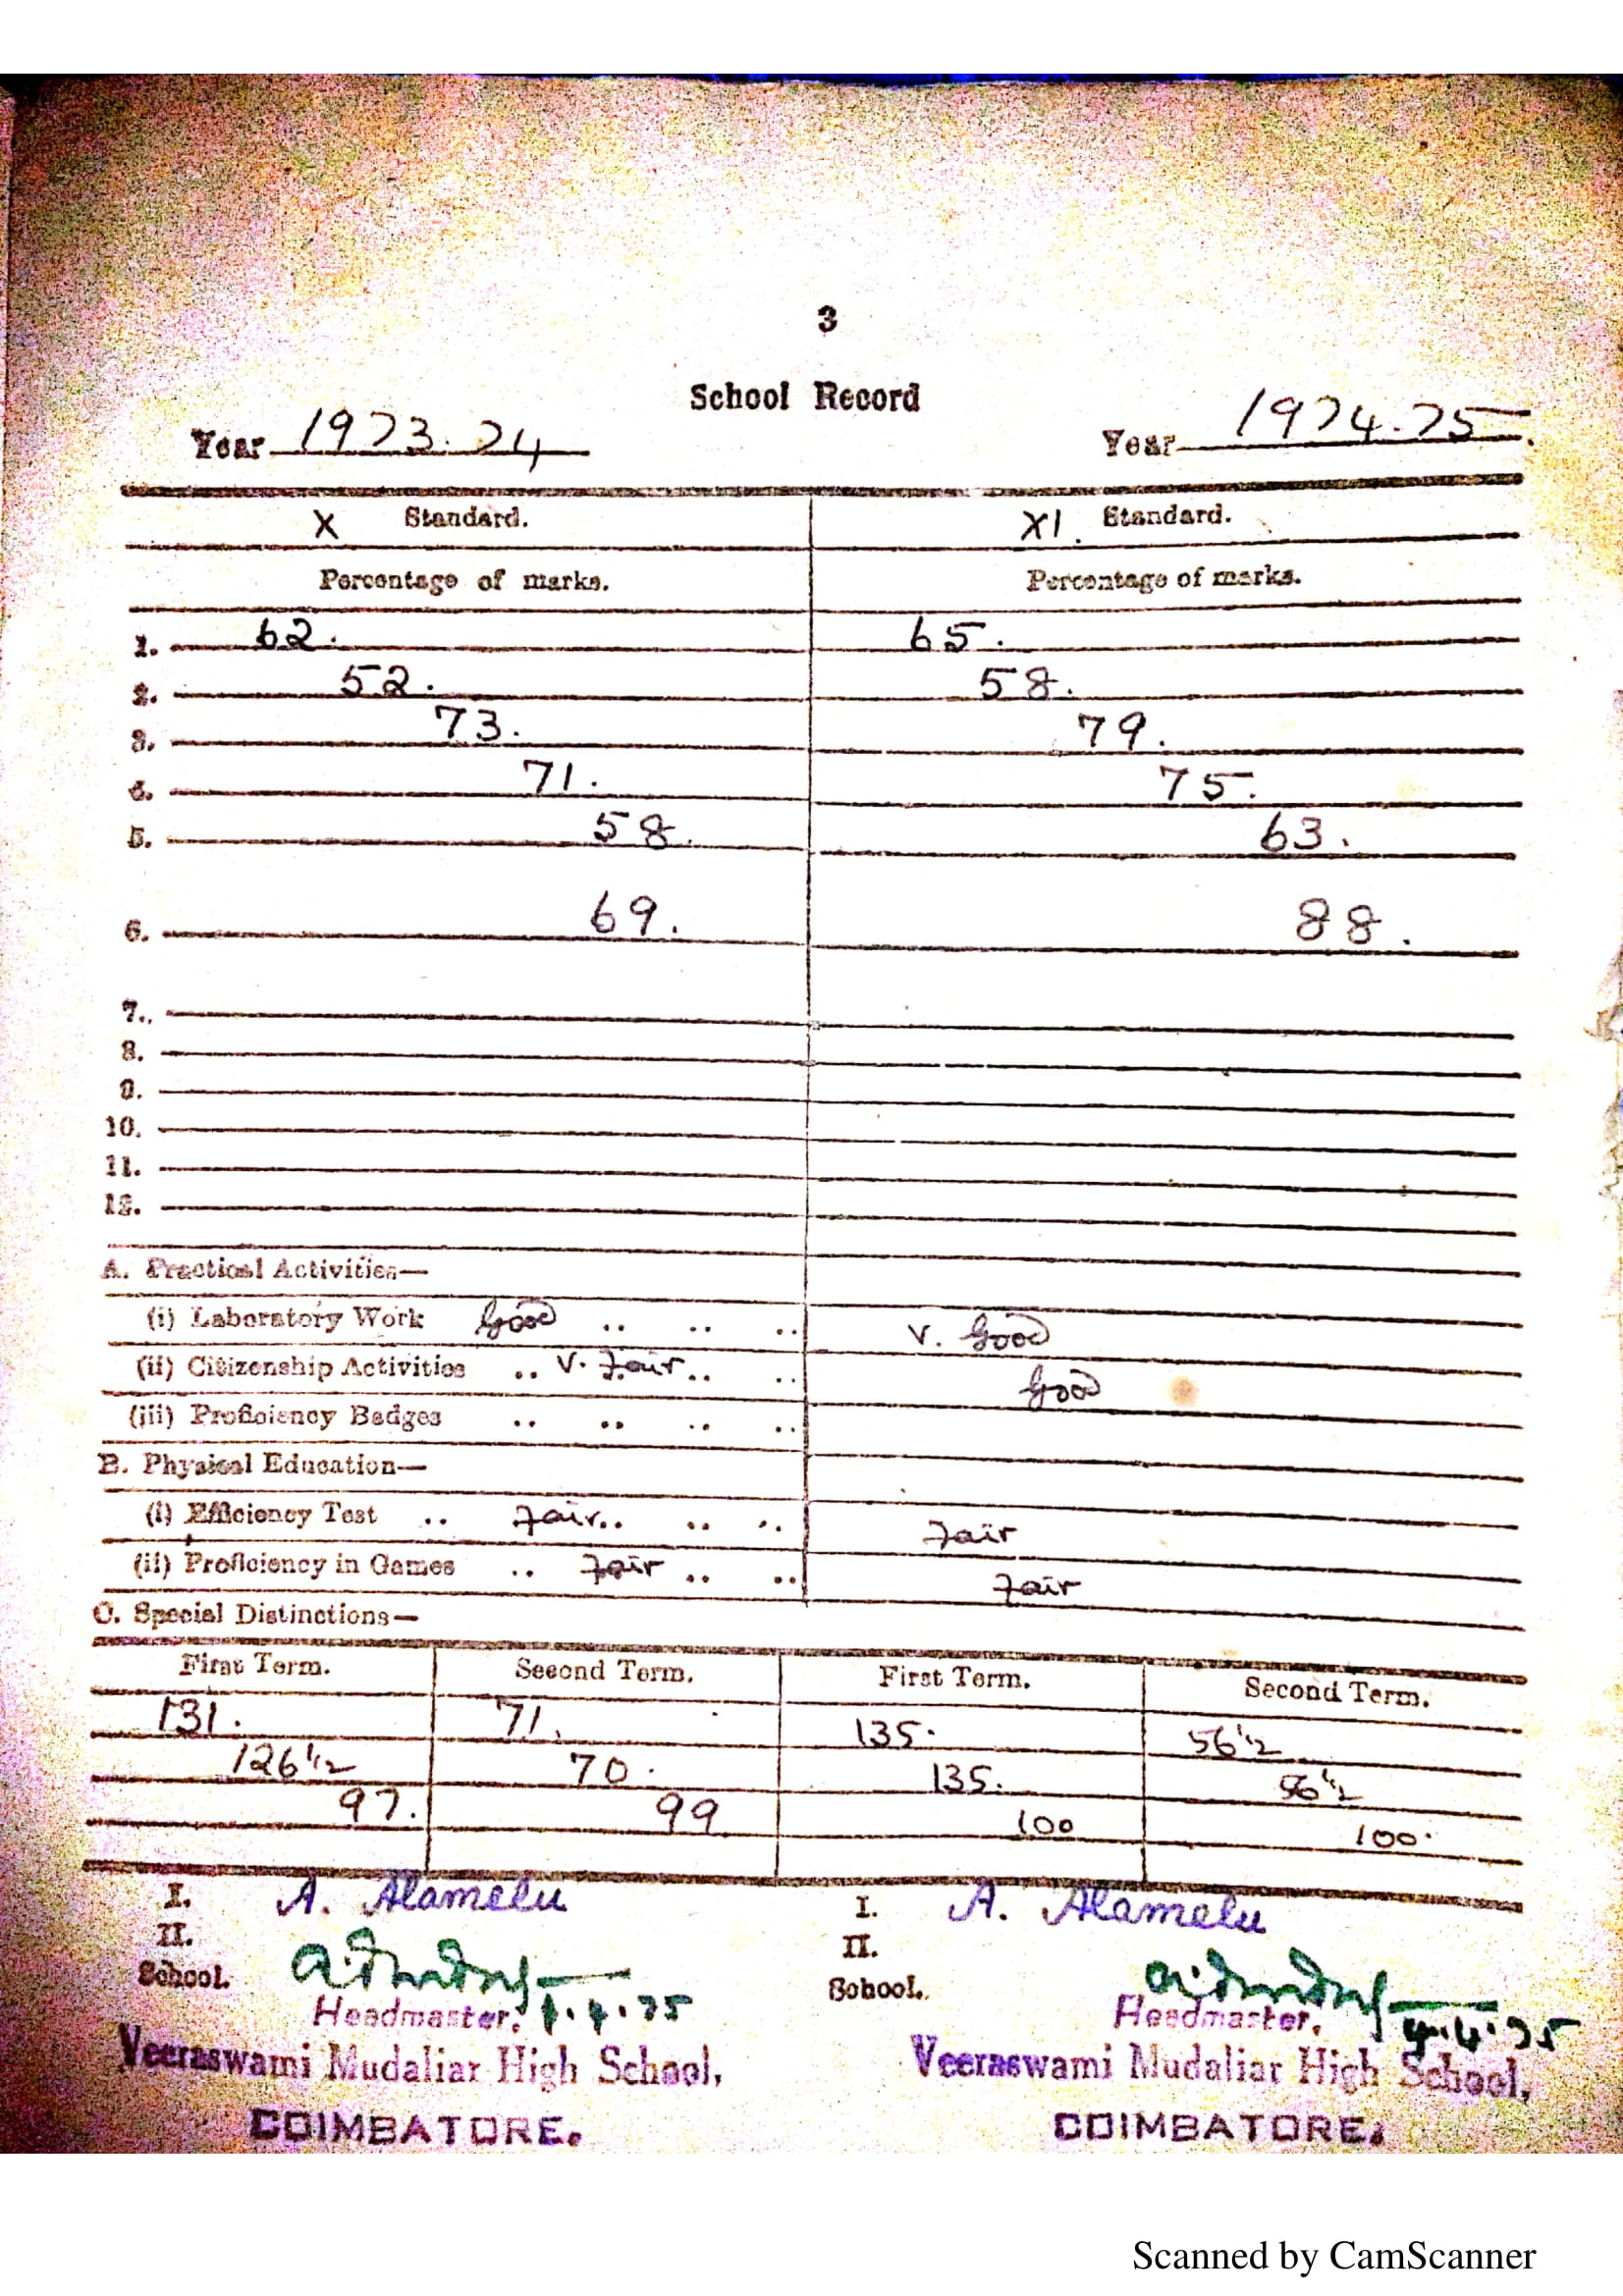 3
School Record
Year 1973.74 Year 1974.75
X Standard. XI. Standard.
Percentage of marks. Percentage of marks.
1. 62. 65.
2. 52. 58.
3. 73. 79.
4. 71. 75.
5. 58. 63.
6. 69. 88.
7.
8.
9.
10.
11.
12.
A. Practical Activities—
(i) Laboratory Work Good .. .. .. V. Good
(ii) Citizenship Activities .. V. Fair .. .. Good
(iii) Proficiency Badges .. .. .. ..
B. Physical Education—
(i) Efficiency Test .. Fair .. .. .. Fair
(ii) Proficiency in Games .. Fair .. .. Fair
C. Special Distinctions—
First Term. Second Term. First Term. Second Term.
131. 71. 135. 56 1/2
126 1/2 70. 135. 56 1/2
97. 99 100 100.
I. A. Alamelu I. A. Alamelu
II. II.
School. School.
Headmaster, 4.4.75 Headmaster, 4.4.75
Veeraswami Mudaliar High School, Veeraswami Mudaliar High School,
COIMBATORE. COIMBATORE.
Scanned by CamScanner